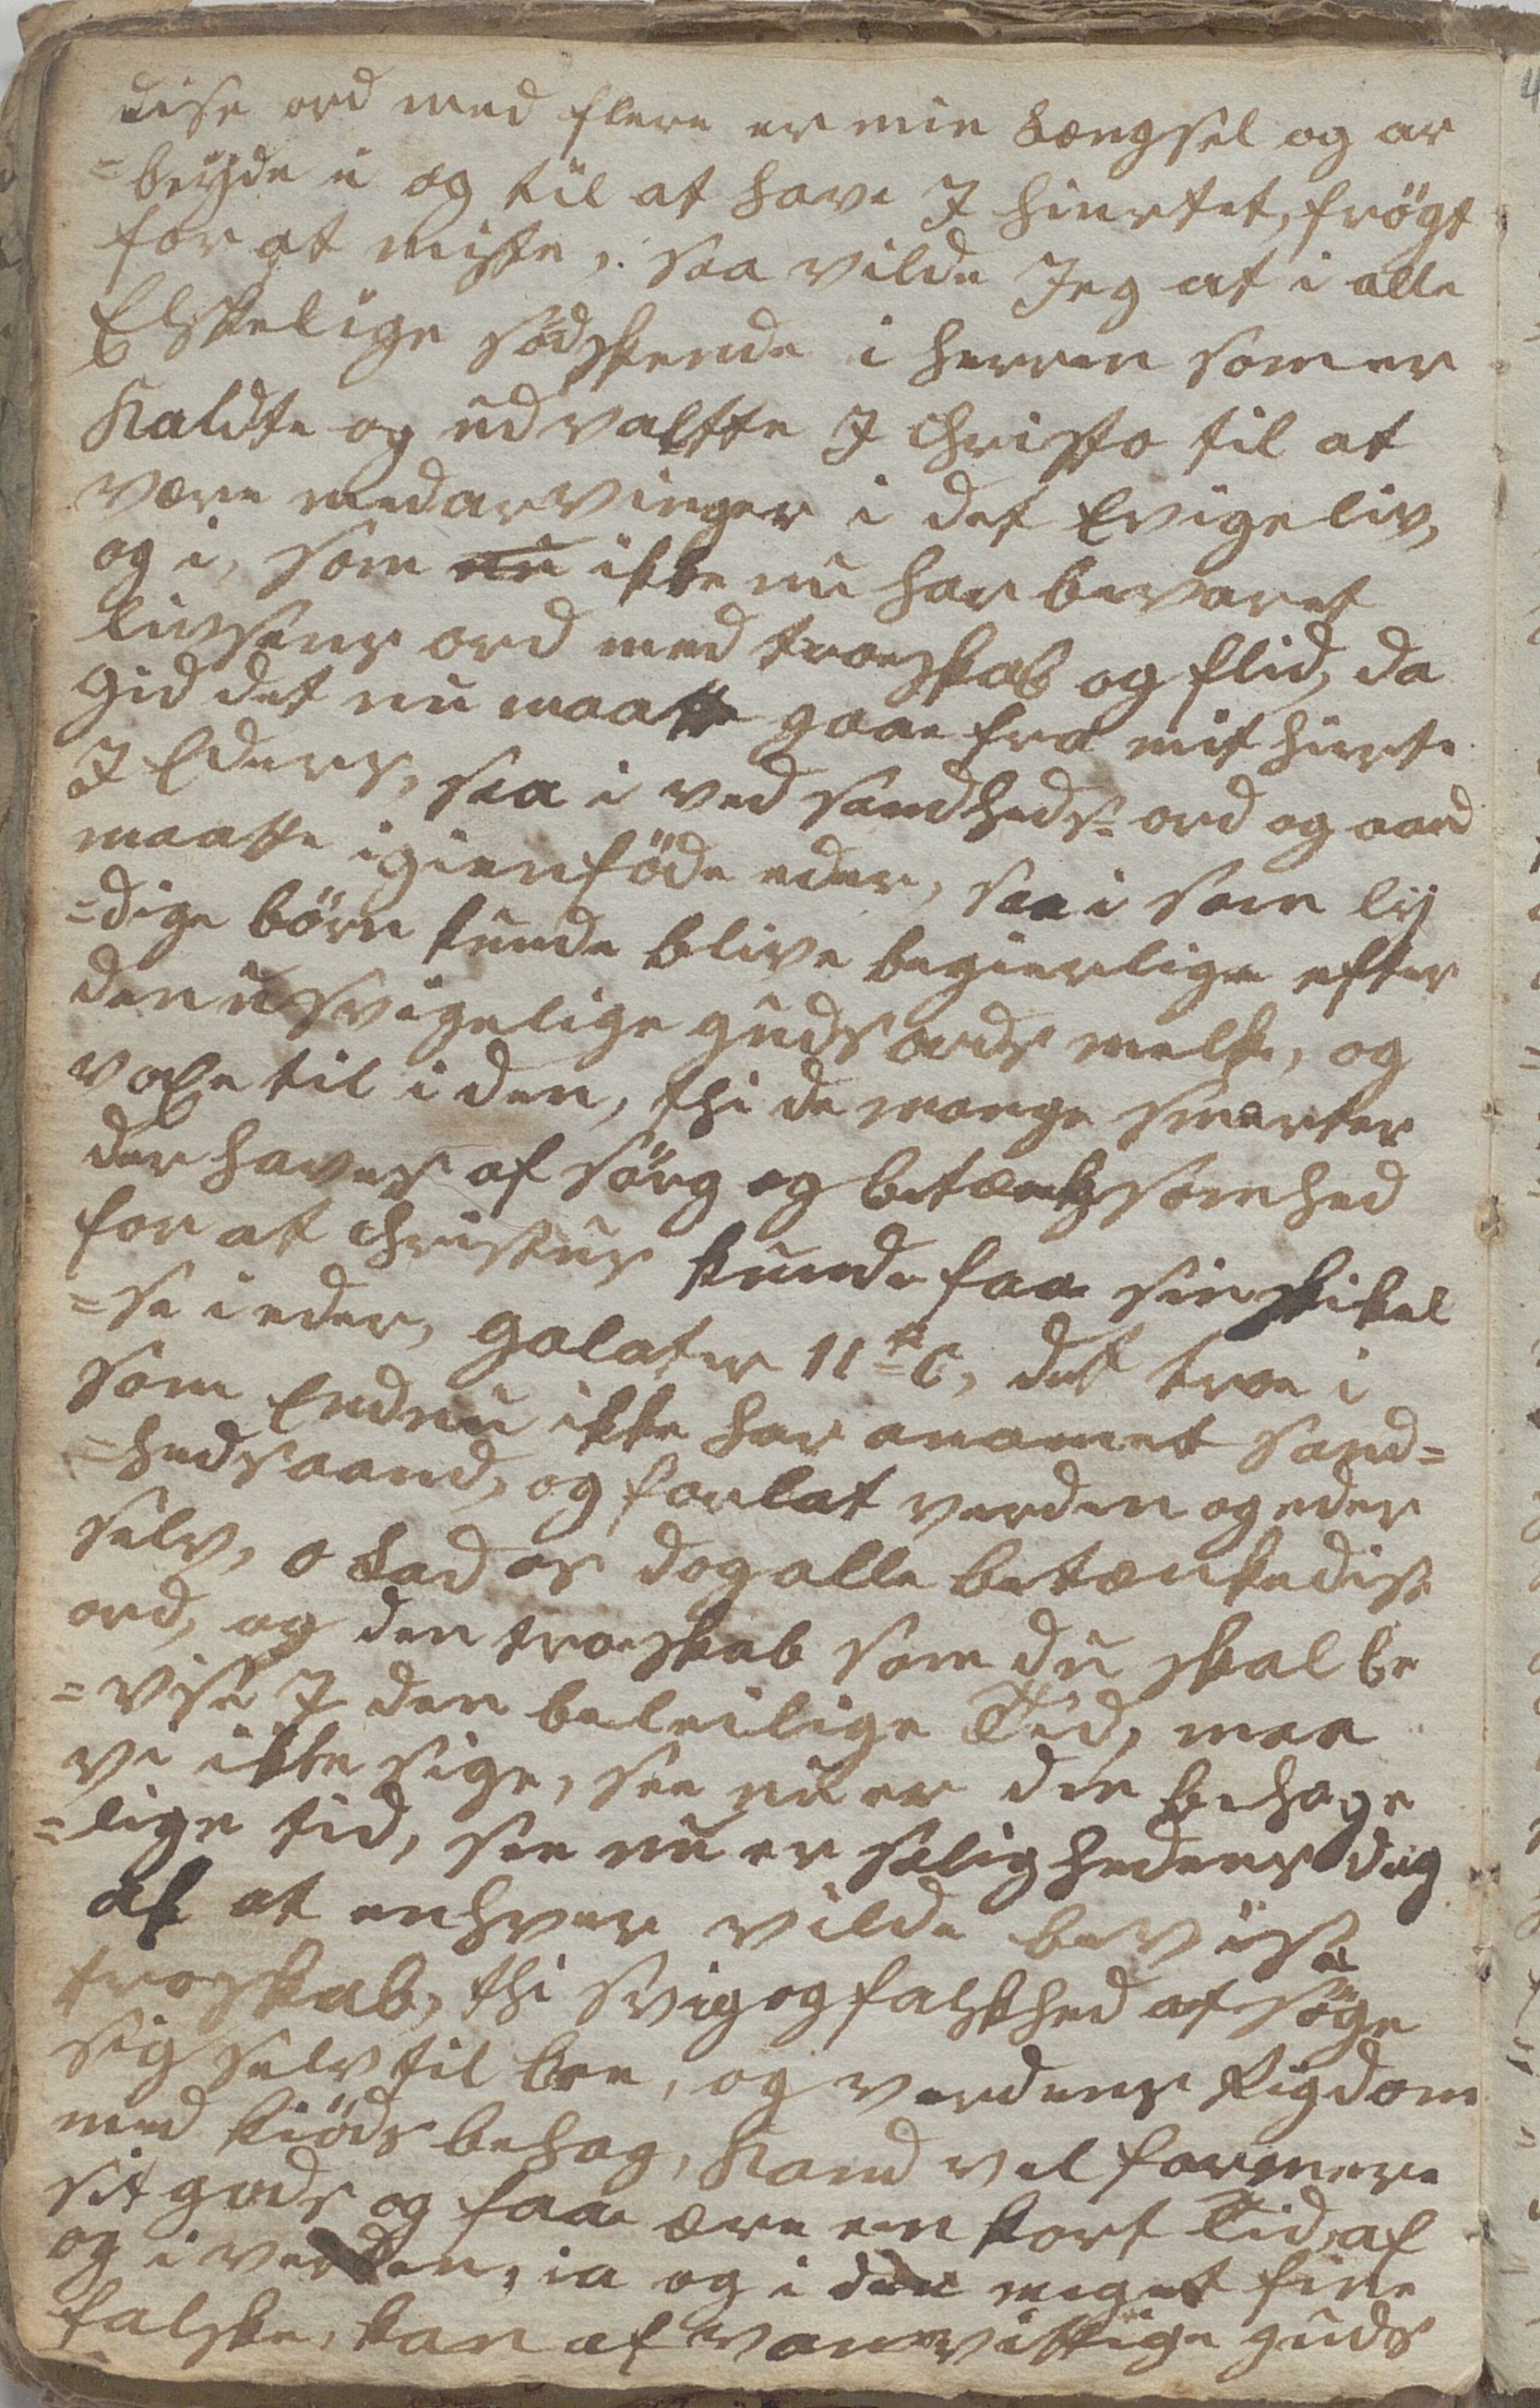 disse ord med flere er min Længsel og ar
=beyde i og til at have I hiertet, frögt
for at miste, saa vilde Jeg at i alle
Elskelige södskende i herren som er
Kaldte og udvaltte I Christo til at
være medarvinger i det Evige liv,
og i, som nu ikke nu har bevaret
livsens ord med troeskab og flid, da
Gid det nu maatte gaae fra mit hierte
I Eders, saa i ved sandheds ord og aand
maatte igienföde eder, saa i som ny
=dige börn kunde blive begierlige efter
den usvigelige guds ords melk, og
voxe til i den, thi de mange smerter
der haves af sörg og betænksomhed
for at Christus kunde faa sin skikel
=se i eder, galater 11te C, det troe i
som Endnu ikke har anamet sand=
=heds aand, og forlat verden og eder
selv, o Lad os dog alle betænke disse
ord, og den troeskab som du skal be
=vise I den beleilige Tid, maa
vi ikke sige, see nu er den behage
=lige tid, see nu er salighedens dag
ak at enhver vilde bevise
troskab, thi svig og falskhed at söge
sig selv til ære, og verdens Rigdom
med kiöds behag, Kand vel formere
sit gods og faa ære en kort Tid, af
og i verden, ia og i den meget fine
falske, kan af vanvittige guds